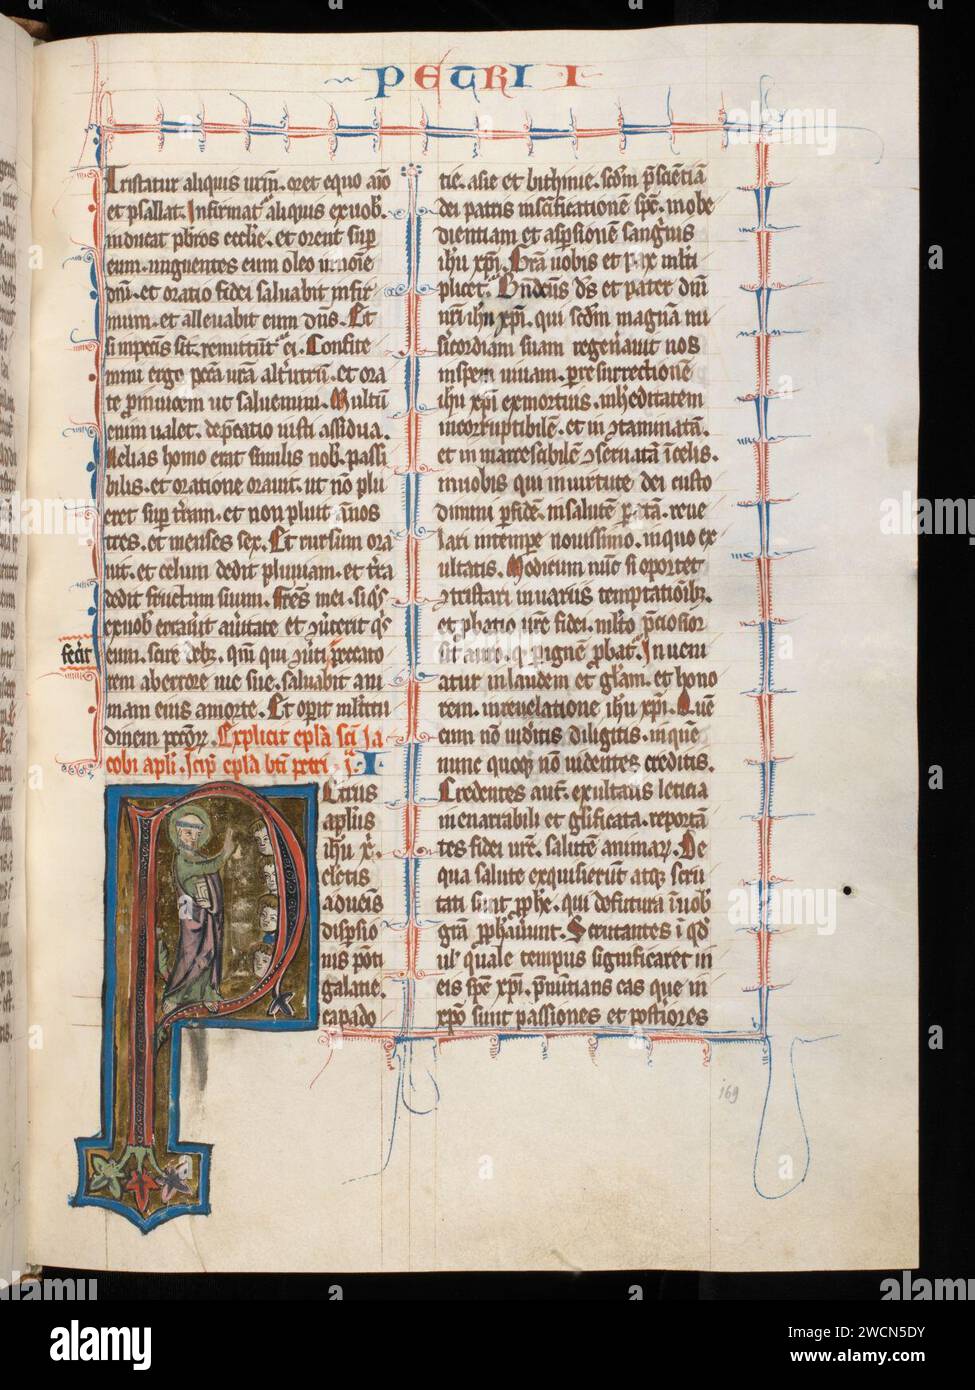 PETRI I
Tristatur aliquis urm̄. oret equo aīo
et psallat. Infirmat aliquis ex uob.
inducat pb̄ros ecclīe. et orent sup
eum. unguentes eum oleo in noīe
dn̄i. et oratio fidei saluabit infir
mum. et alleuabit eum dn̄s. Et
si in pecc̄is sit. remittūt ei. Confite
mini ergo pccā urā alt'utrū. et ora
te p inuicem ut saluemini. Multū
enim ualet. dep̄catio iusti assidua.
Helias homo erat similis nob. passi
bilis. et oratione orauit. ut nō plu
eret sup t'ram. et non pluit ānos
tres. et menses sex. Et rursum ora
uit. et celum dedit pluuiam. et t'ra
dedit fructum suum. Frēs mei. siq̄s
ex uob errau'it a ūitate et ɔū'terit q̄s
fec'it
eum. scire deb;. qm̄ qui ɔū'ti peccato
rem ab errore uie sue. saluabit ani
mam eius a morte. Et op̄it multitu
dinem pccōꝝ. Explicit epl̄a sc̄i Ja
cobi apl̄i. Incip̄ epl̄a bt̄i petri .j. I
PEtrus
apl̄us
ih̄u xp̄i.
eletis
aduēis
disp̄sio
nis pōti
galatie.
capado
tie. asie et bithinie. scdm p̄sciētiā
dei patris in sc̄ificationē spc̄. in obe
dientiam et asp̄sionē sanguis
ih̄u xp̄i. Gr̄a uobis et pax mlti
plicet. Bn̄dictus ds̄ et pater dn̄i
nr̄i ih̄u xp̄i. qui scdm magnā mi
s'icordiam suam regen'auit nos
in spem uiuam. p resurrectionē
ih̄u xp̄i ex mortuis. in h'editatem
incorruptibilē. et in ɔtaminatā.
et in marcescibilē ɔseruatā ī celis.
in uobis qui in uirtute dei custo
dimini p fidē. in salutē patā. reue
lari in tempe nouissimo. in quo ex
ultatis. Modicum nūc si oportet
ɔtristari in uariis temptatiōib.
et p̄batio ur̄e fidei. mlto p̄ciosior
sit auro. q̄ p ignē p̄bat. Inueni
atur in laudem et gl̄am. et hono
rem. in reuelatione ih̄u xp̄i. Quē
cum nō uiditis diligitis. in quē
nunc quoq̄ nō uidentes creditis.
Credentes aut̄. exultabis leticia
inenarrabili et gl̄ificata. reportā
tes fidei ur̄e. salutē animaꝝ. De
qua salute exquisierūt atq̄ scru
tati sunt p̄phe. qui de futura ī uob
gr̄a p̄phau'unt. Scrutantes ī qd̄
ul' quale tempus significaret in
eis spc̄ xp̄i. p̄nūtians eas que in
xp̄o sunt passiones et post'iores
169
alamy
Image ID: 2WCN5DY
www.alamy.com